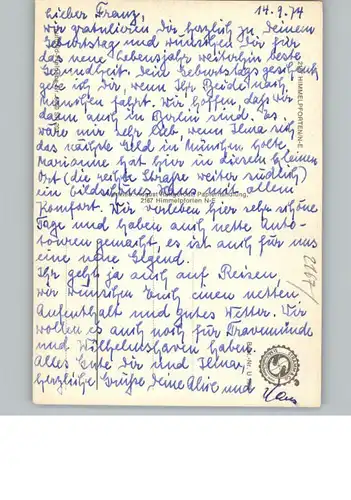 14.9.74
Lieber Franz,
wir gratulieren Dir herzlich zu Deinem
Geburtstag und wünschen Dir für
das neue Lebensjahr weiterhin beste
Gesundheit. Dein Geburtstagsgeschenk
gebe ich Dir, wenn Ihr Beide nach
München fahrt. Wir hoffen, daß wir
dann auch in Berlin sind. Es
wäre mir sehr lieb, wenn Ilena sich
das nächste Geld in München holte.
Marianne hat hier in diesem kleinen
Ort (die rechte Straße weiter südlich)
ein bildschönes Haus mit allem
Komfort. Wir verleben hier sehr schöne
Tage und haben auch nette Auto-
touren gemacht, es ist auch für uns
eine neue Gegend.
Ihr geht ja auch auf Reisen,
wir wünschen Euch einen netten
Aufenthalt und gutes Wetter. Wir
wollen es auch noch für Travemünde
und Wilhelmshaven haben.
Alles Gute Dir und Ilena,
herzliche Grüße Deine Alice und
HIMMELPFORTEN-N-E.
Papierhandlung,
2167 Himmelpforten N-E
2167